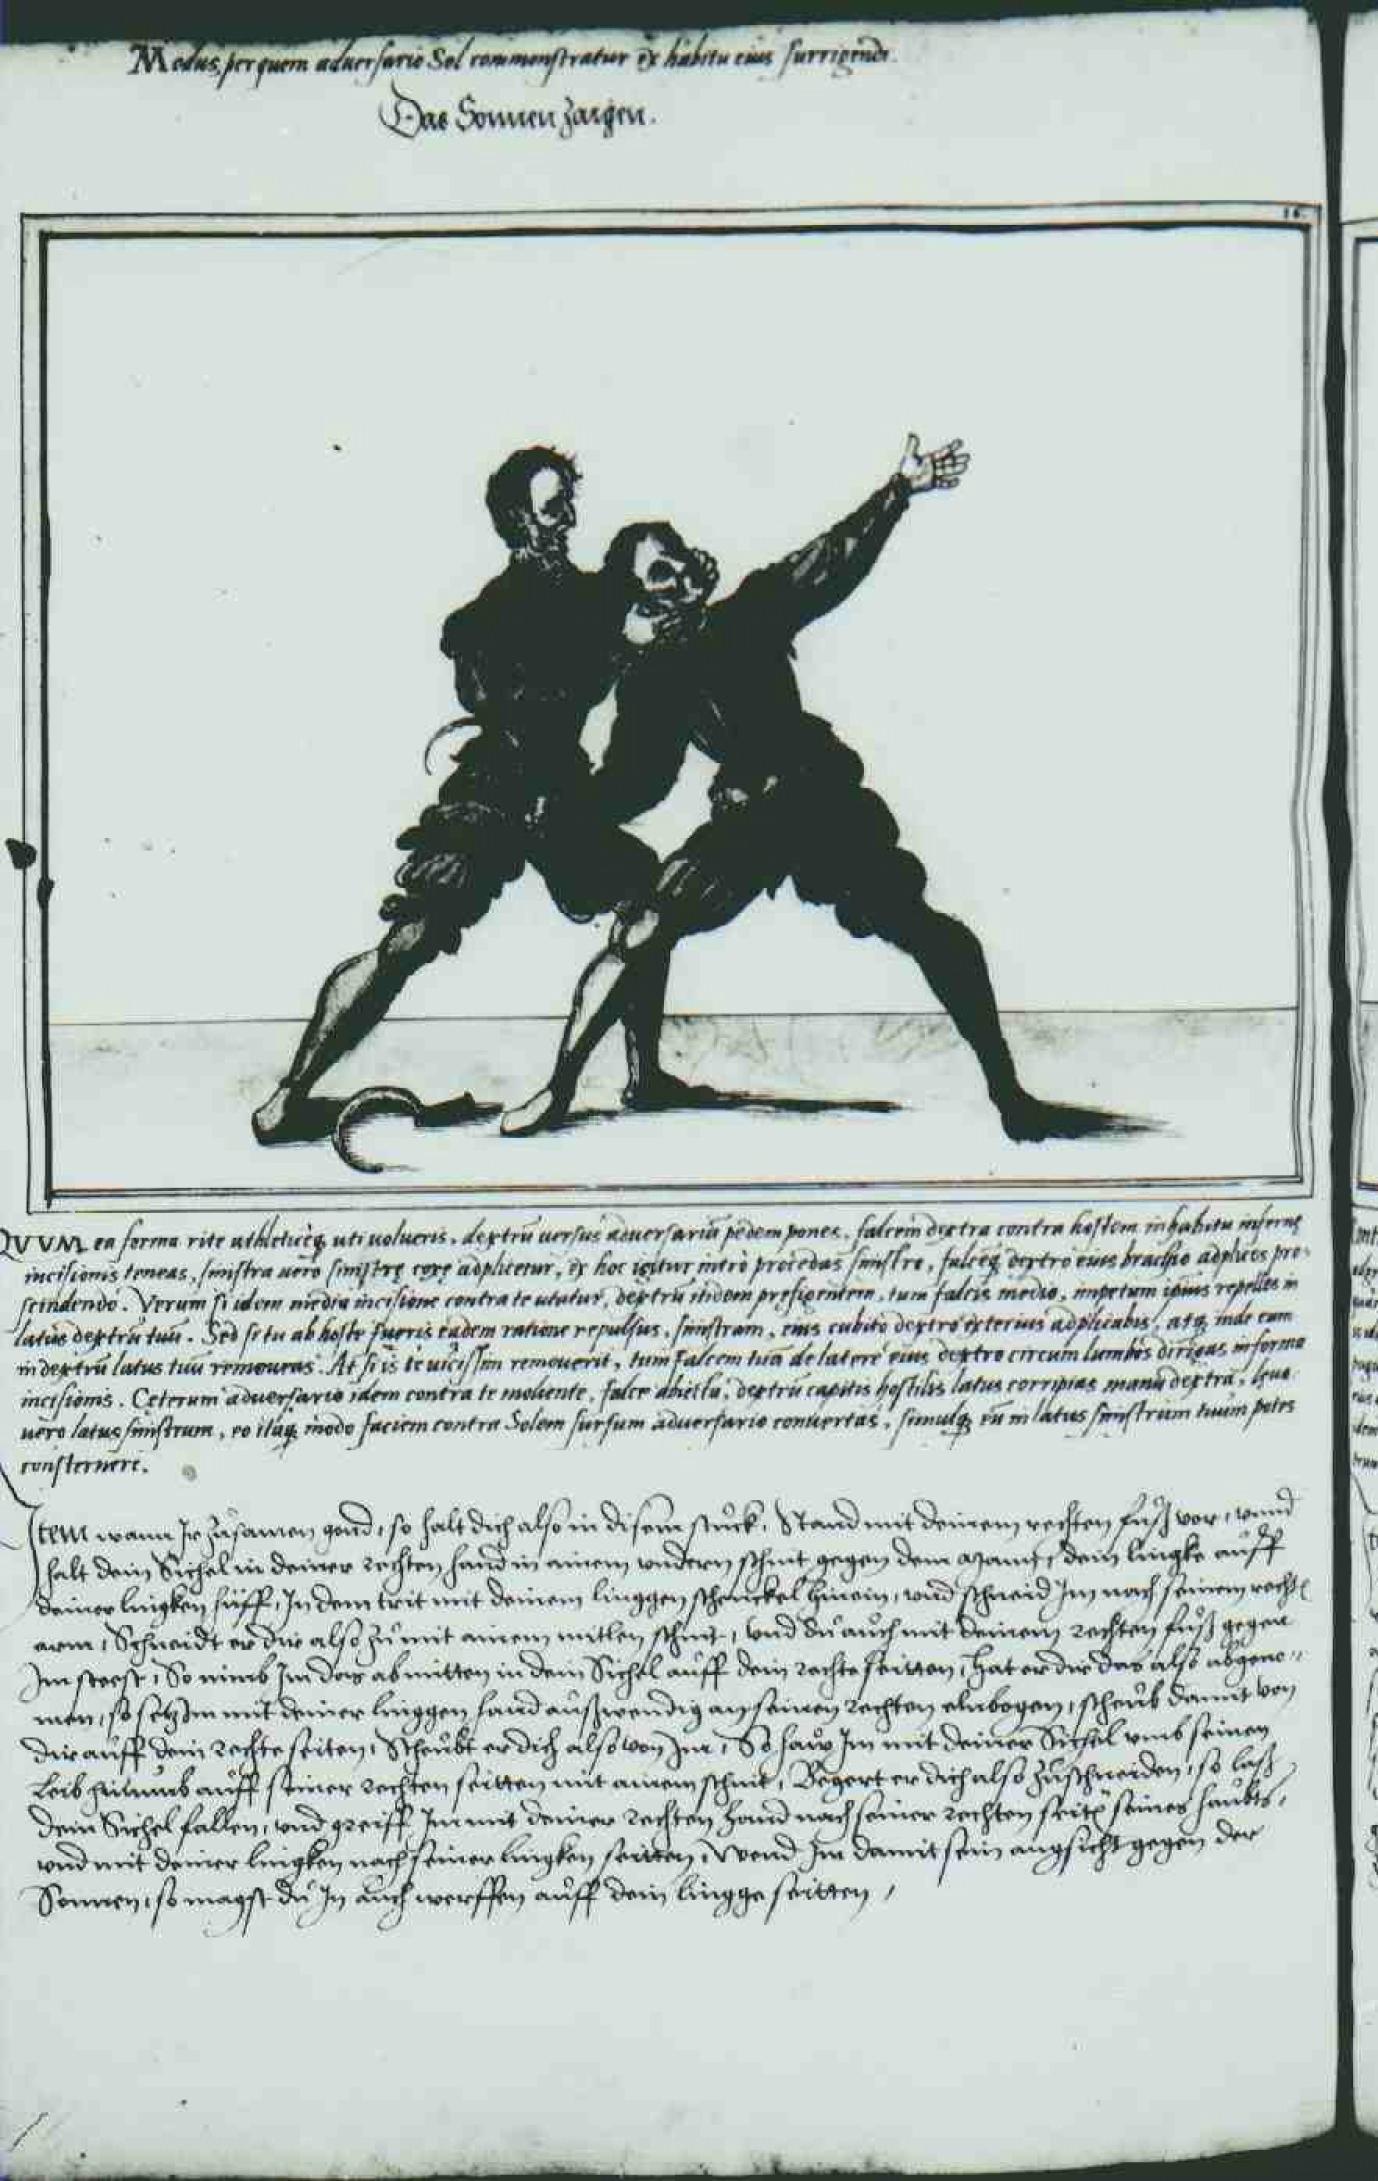 Modus, per quem aduersario Sol commonstratur ex habitu eius surrigendi.
Das Sonnen zaigen.
16.
QVVM ea forma rite athleticèq; uti uolueris, dextrũ uersus aduersariũ pedem pones, falcem dextra contra hostem in habitu infernę
incisionis teneas, sinistra uero sinistrę coxę adplicetur, ex hoc igitur intrò procedas sinistro, falcẽq; dextro eius brachio adplices pro-
scindendo. Verum si idem media incisione contra te utatur, dextrũ itidem prefigentem, tum falcis medio, impetum ipsius repelles in
latus dextrũ tuũ. Sed si tu ab hoste fueris eadem ratione repulsus, sinistram, eius cubito dextro exterius adplicabis, atq; inde eum
in dextrũ latus tuũ remoueas. At si is te uicissim remouerit, tum falcem tuã de latere eius dextro circum lumbos dirigas in forma
incisionis. Ceterum aduersario idem contra te moliente, falce abiecta, dextrũ capitis hostilis latus corripias manu dextra, leua
uero latus sinistrum, eo itaq; modo faciem contra Solem sursum aduersario conuertas, simulq; eũ in latus sinistrum tuum potes
consternere.
Item wann Ir zůsamen gond, so halt dich also in disem stuck, Stand mit deinem rechten fůß vor, vnnd
halt dein Sichel in deiner rechten hand in ainem vndern schnit gegen dem Mann, dein lingke auff
deiner lingken hüff, In dem trit mit deinem linggen schenckel hinein, vnd schneid Im nach seinem rechtñ
arm, Schneidt er dir also zů mit ainem mitlen schnit, vnd du auch mit deinem rechten fůß gegen
Im steest, So nimb Im das ab mitten in dem Sichel auff dein rechte seitten, Hat er dir das also abgeno-
men, so setz Im mit deiner linggen hand außwendig an seinen rechten elnbogen, scheub damit von
dir auff dein rechte seiten, Scheubt er dich also von Im, So haw Im mit deiner Sichel vmb seinen
Leib hinumb auff seiner rechten seitten mit ainem schnit, Begert er dich also zuschneiden, so laß
dein Sichel fallen, vnd greiff Im mit deiner rechten hand nach seiner rechten seitñ seines haubts,
vnd mit deiner lingken nach seiner lingken seitten, Wend Im damit sein angsicht gegen der
Sonnen, so magst du In auch werffen auff dein lingge seitten,